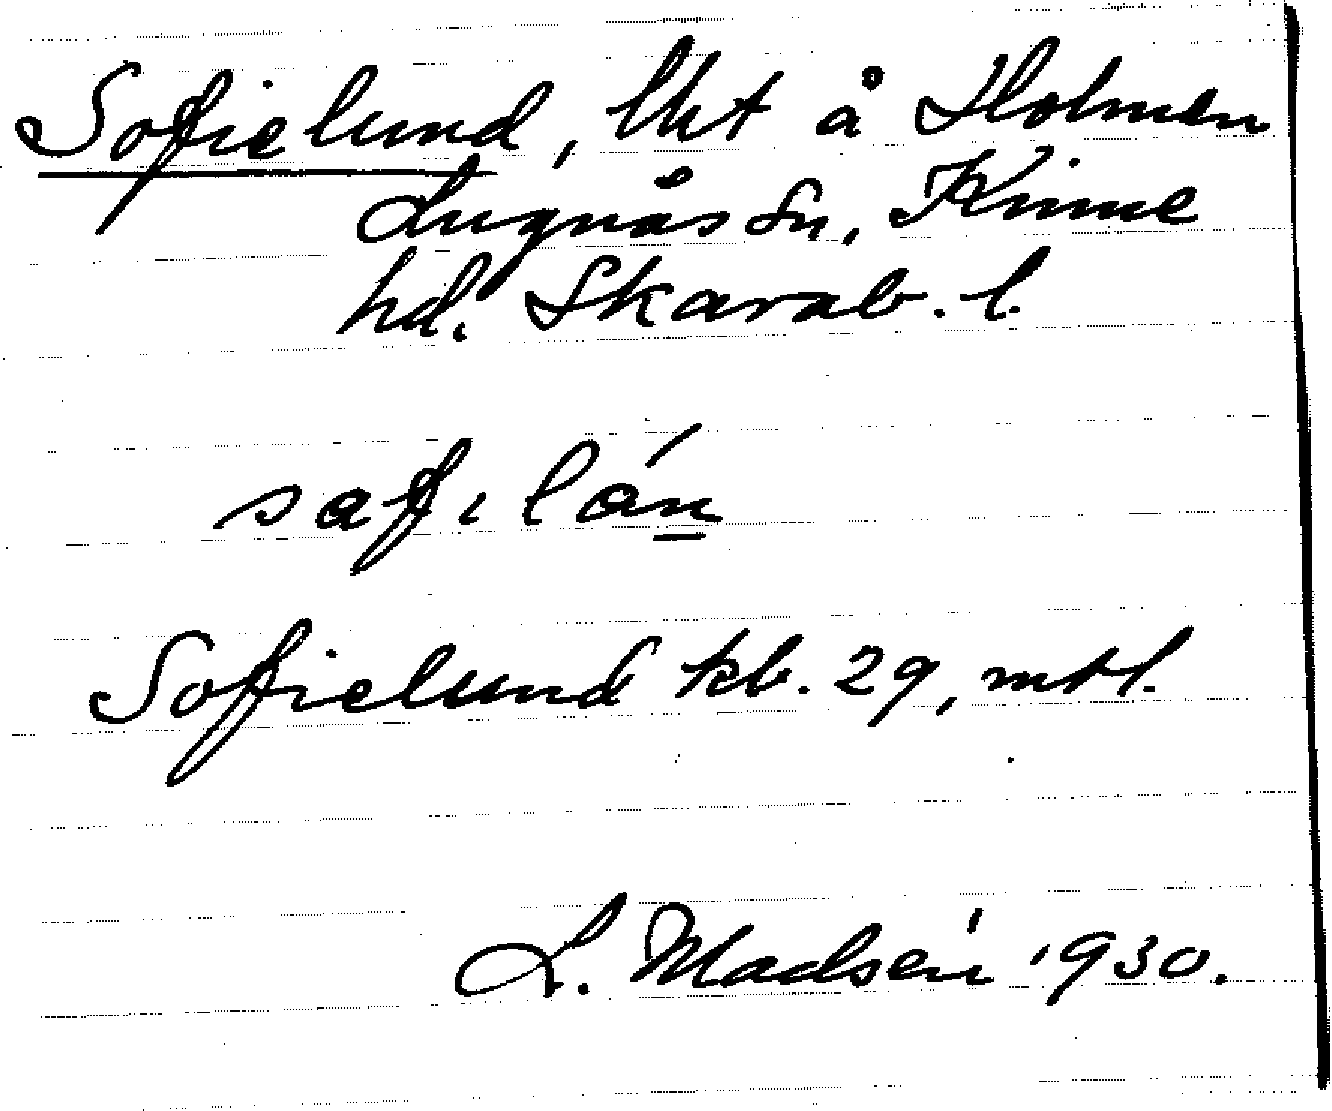 Sofielund, lht å Holmen
Lugnås sn, Kinne
hd. Skarab. l.
safilán
Sofielund kb. 29, mtl.
L. Madsén 1930.